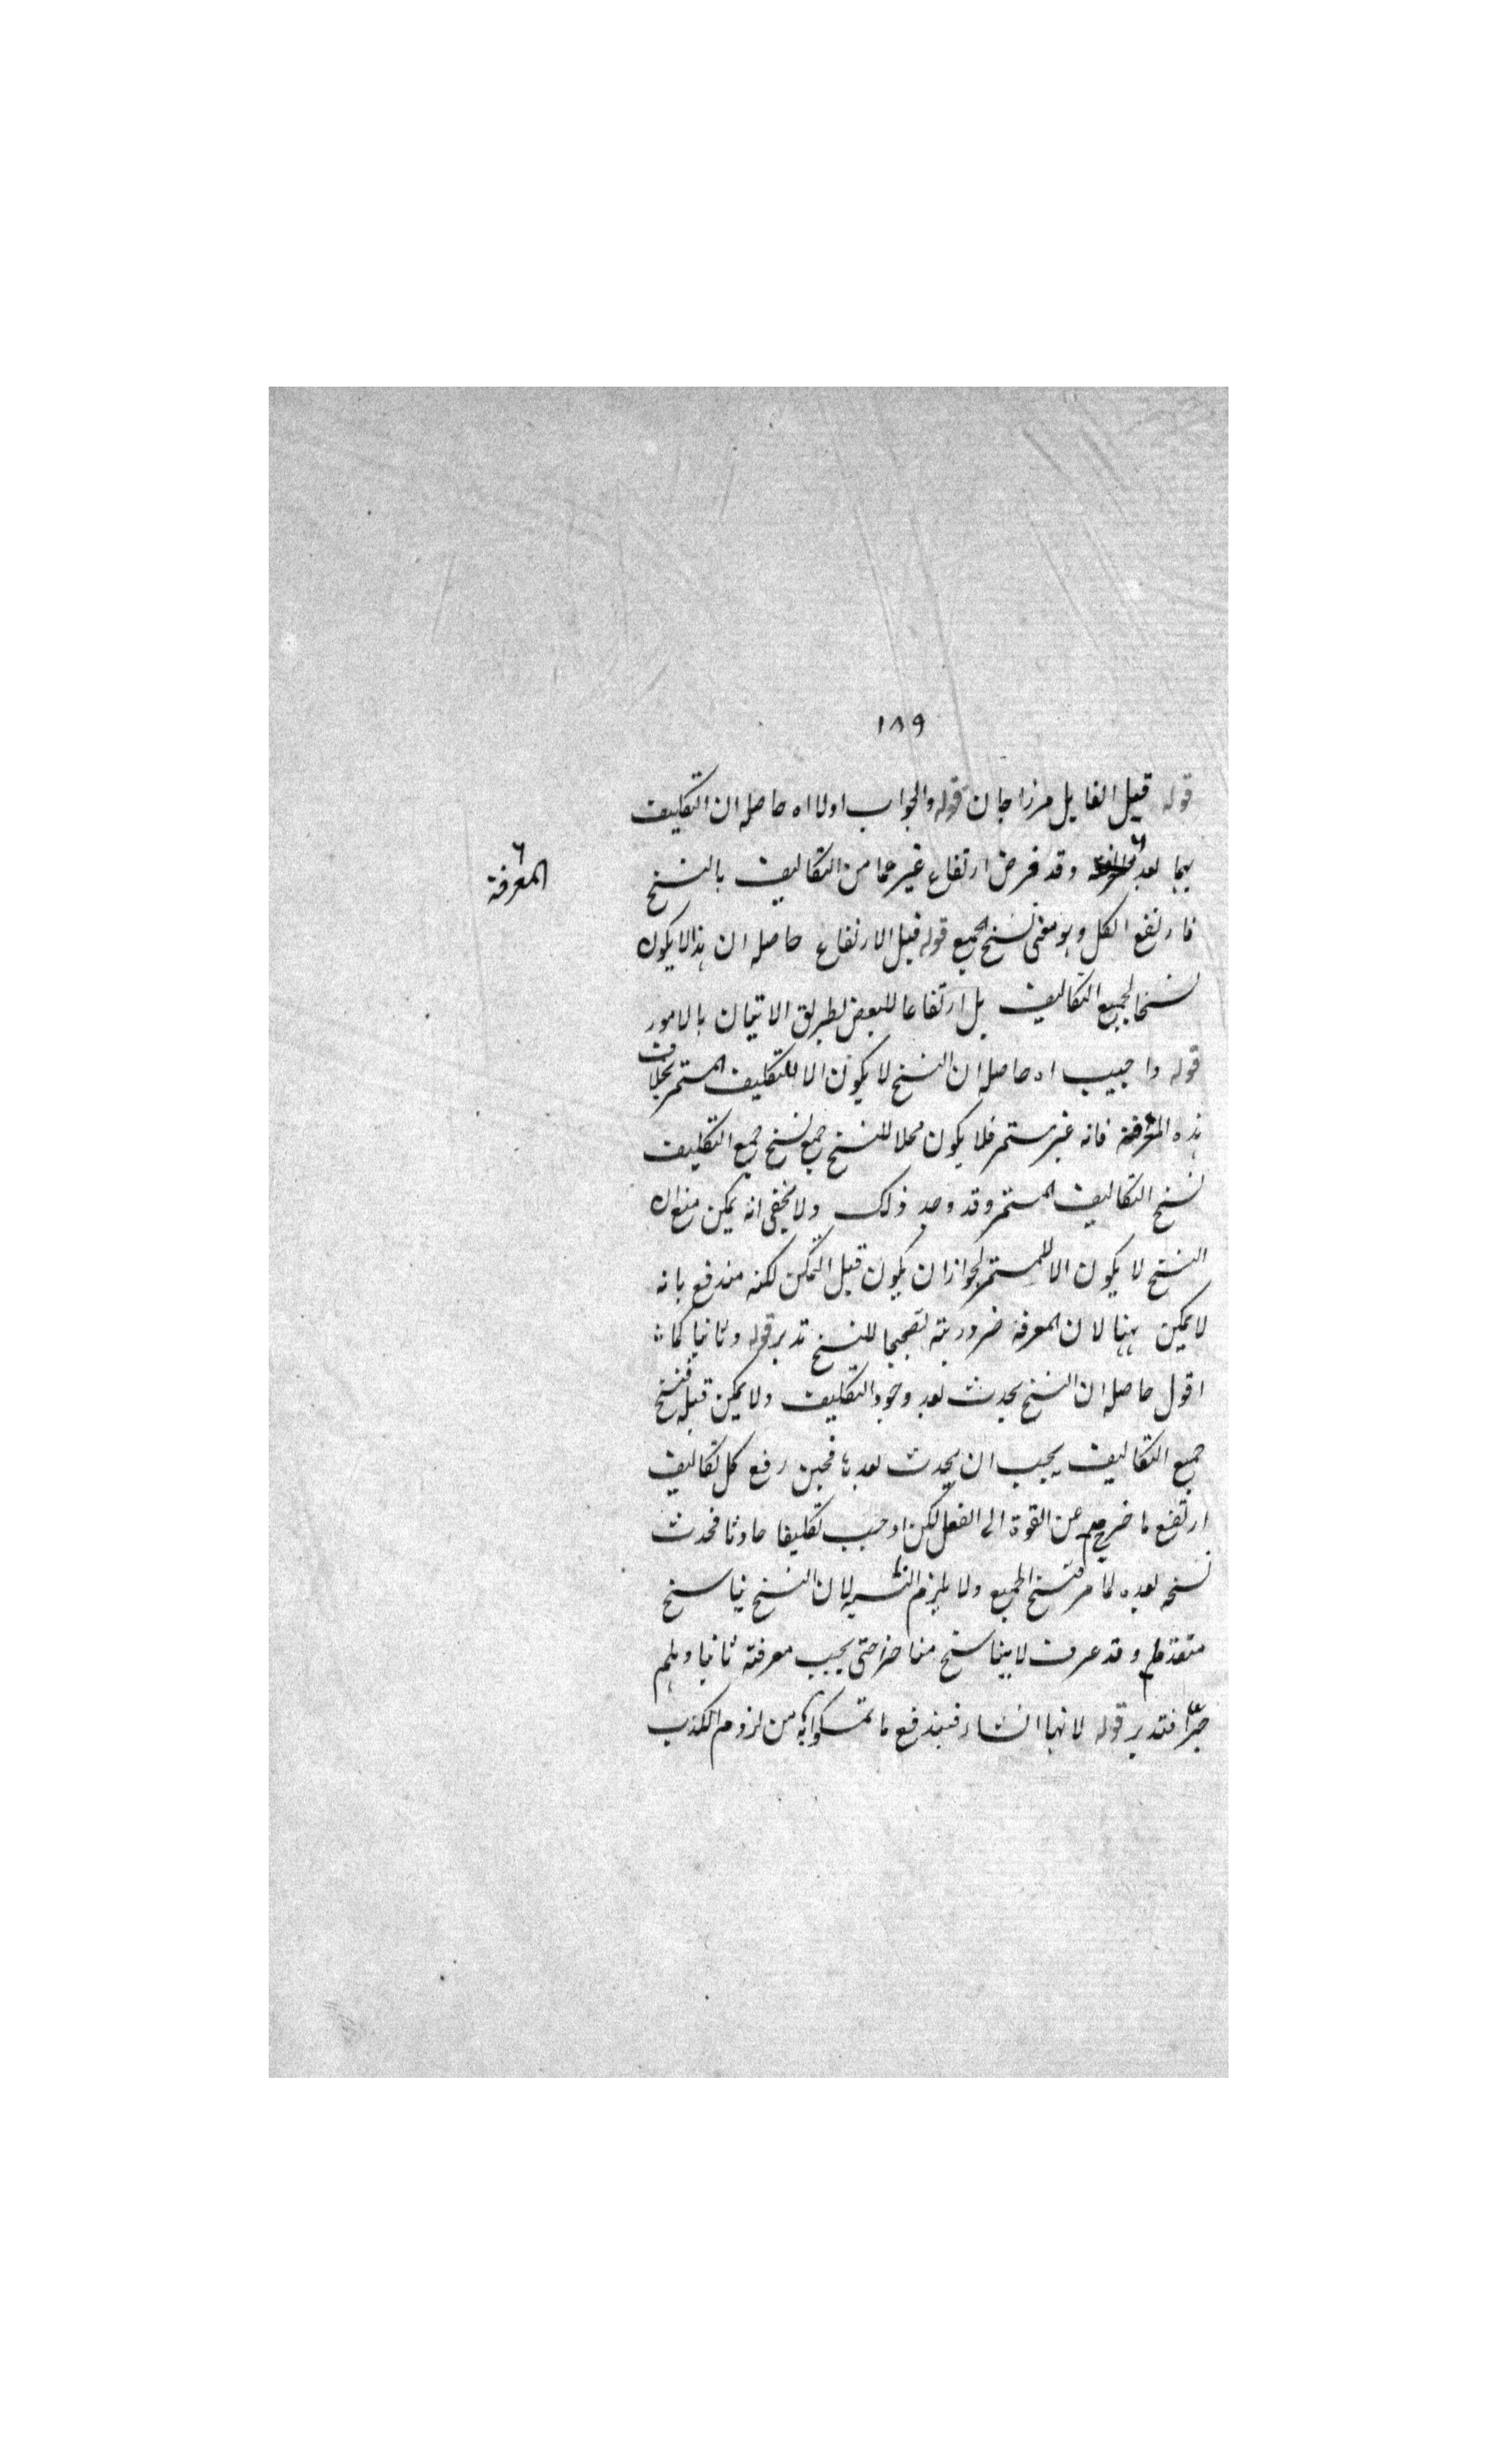 ١٨٩
قوله قيل القايل مرزا جان قوله والجواب اولا اه حاصله ان التكليف
بهما بعد وقد فرض ارتفاع غيرهما من التكاليف بالنسخ
المعرفة
فارتفع الكل وهو معنى نسخ الجميع قوله قيل الارتفاع حاصله ان هذا لا يكون
نسخا لجميع التكاليف بل ارتفاعا للبعض بطريق الاتيان بالامور
قوله واجيب اه حاصله ان النسخ لا يكون الا للتكليف المستمر بخلاف
هذه المعرفة فانه غير مستمر فلا يكون محلا للنسخ جميع نسخ جميع التكليف
نسخ التكاليف المستمر وقد وجد ذلك ولا يخفى انه يمكن منع ان
النسخ لا يكون الا للمستمر لجواز ان يكون قبل التمكن لكنه مندفع بانه
لا يمكن ههنا لان المعرفة ضرورية تصحيحا للنسخ تدبر قوله وثانيا كما
اقول حاصله ان النسخ يحدث بعد وجود التكليف ولا يمكن قبله فنسخ
جميع التكاليف يجب ان يحدث بعدها فحين رفع كل تكاليف
ارتفع ما خرج من القوة الى الفعل لكن اوجب تكليفا حادثا فحدث
نسخه بعده لما مر فنسخ الجميع ولا يلزم التسلسل لان النسخ بناسخ
متقدم وقد عرفت لا بناسخ متاخر حتى يجب معرفته ثانيا وهلم
جرّا فتدبر قوله لانها انشاء فيندفع ما تمسكوا به من لزوم الكذب